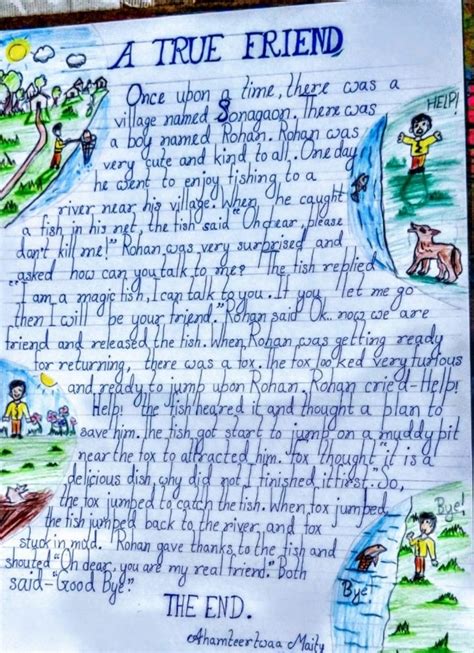 A TRUE FRIEND
Once upon a time, there was a
village named Sonagaon. There was
a boy named Rohan. Rohan was
very cute and kind to all. One day
he went to enjoy fishing to a
river near his village. When he caught
a fish in his net, the fish said "Oh dear, please
don't kill me!" Rohan was very surprised and
asked how can you talk to me? The fish replied
"I am a magic fish, I can talk to you. If you let me go
then I will be your friend." Rohan said Ok.. now we are
friend and released the fish. When Rohan was getting ready
for returning, there was a fox. The fox looked very furious
and ready to jump upon Rohan. Rohan cried-Help!
Help! the fish heared it and thought a plan to
save him. The fish got start to jump on a muddy pit
near the fox to attracted him. Fox thought "it is a
delicious dish, why did not I finished it first." So,
the fox jumped to catch the fish. When fox jumped,
the fish jumped back to the river, and fox
stuck in mud. Rohan gave thanks to the fish and
shouted "Oh dear, you are my real friend." Both
said-"Good Bye".
THE END.
HELP!
Bye!
Bye!